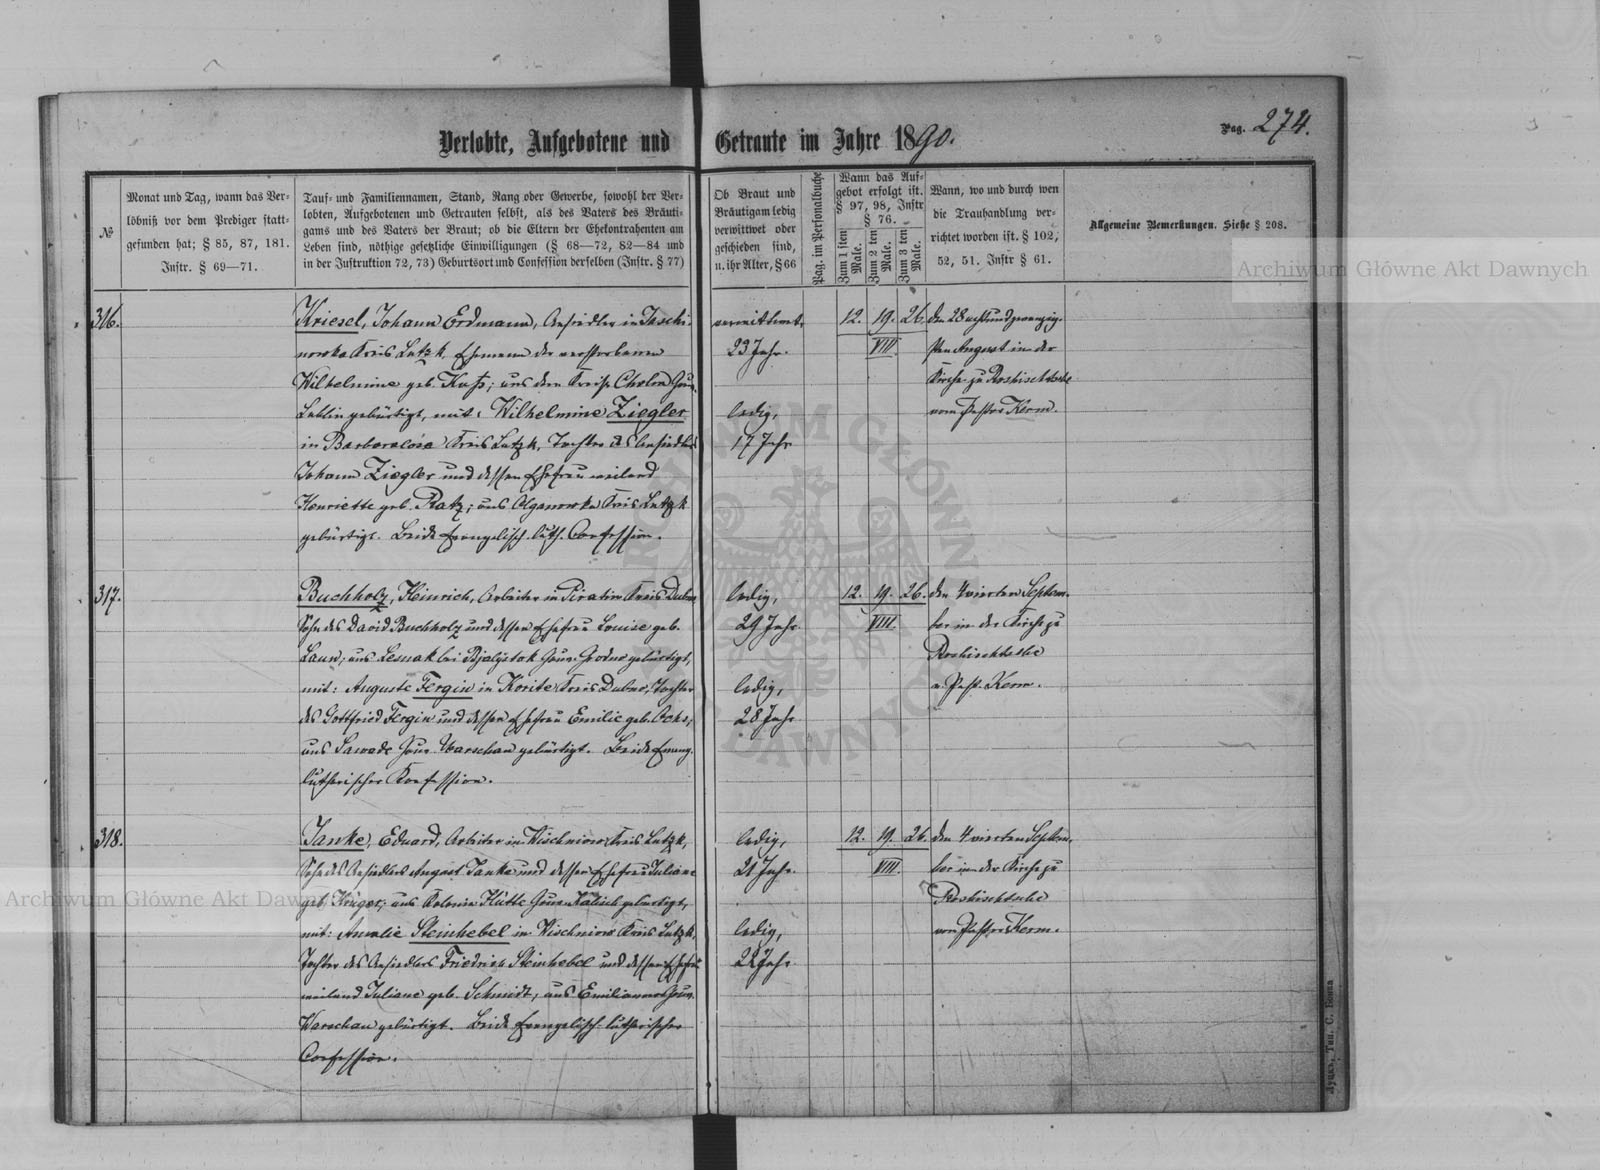 Verlobte, Aufgebotene und Getraute im Jahre 1890.
Pag. 274.
№
Monat und Tag, wann das Ver-
löbniß vor dem Prediger statt-
gefunden hat; § 85, 87, 181.
Instr. § 69—71.
Tauf- und Familiennamen, Stand, Rang oder Gewerbe, sowohl der Ver-
lobten, Aufgebotenen und Getrauten selbst, als des Vaters des Bräuti-
gams und des Vaters der Braut; ob die Eltern der Ehekontrahenten am
Leben sind, nöthige gesetzliche Einwilligungen (§ 68—72, 82—84 und
in der Instruktion 72, 73) Geburtsort und Confession derselben (Instr. § 77)
Ob Braut und
Bräutigam ledig
verwittwet oder
geschieden sind,
u. ihr Alter, § 66
Pag. im Personalbuche
Wann das Auf-
gebot erfolgt ist.
§ 97, 98, Instr
§ 76.
Zum 1 sten Male.
Zum 2 ten Male.
Zum 3 ten Male.
Wann, wo und durch wen
die Trauhandlung ver-
richtet worden ist. § 102,
52, 51. Instr § 61.
Allgemeine Bemerkungen. Siehe § 208.
316.
Kriesel, Johann Erdmann, Ansiedler in Jaschi-
nowka Kreis Lutzk, Ehemann der verstorbenen
Wilhelmine geb. Kuß; aus dem Kreise Cholm Gouv.
Lublin gebürtigt, mit: Wilhelmine Ziegler
in Barbaraløwa Kreis Lutzk, Tochter des Ansiedlers
Johann Ziegler und dessen Ehefrau weiland
Henriette geb. Ratz; aus Olganowka Kreis Lutzk
gebürtigt. Beide Evangelisch-luth. Confession.
verwittwet
23 Jahr.
ledig,
17 Jahr
12. 19. 26.
VIII.
den 28 achtundzwanzig-
sten August in der
Kirche zu Roshischtsche
vom Pastor Kerm.
317.
Buchholz, Heinrich, Arbeiter in Piratin Kreis Dubno
Sohn des David Buchholz und dessen Ehefrau Louise geb.
Laun; aus Lesnak bei Bjalystok Gouv. Grodno gebürtigt,
mit: Auguste Fergin in Korite Kreis Dubno, Tochter
des Gottfried Fergin und dessen Ehefrau Emilie geb. Ochs;
aus Sawade Gouv. Warschau gebürtigt. Beide Evang.
lutherischer Konfession.
ledig,
29 Jahr
ledig,
28 Jahr
12. 19. 26.
VIII.
den 4 vierten Septem-
ber in der Kirche zu
Roshischtsche
v. Past. Kerm.
318.
Janke, Eduard, Arbeiter in Wischniow Kreis Lutzk,
Sohn des Ansiedlers August Janke und dessen Ehefrau Juliane
geb. Krüger; aus Kolonie Hütte Gouv. Kalisch gebürtigt,
mit: Amalie Steinhebel in Wischniow Kreis Lutzk,
Tochter des Ansiedlers Friedrich Steinhebel und dessen Ehefrau
weiland Juliane geb. Schmidt; aus Emilianow Gouv.
Warschau gebürtigt. Beide Evangelisch-lutherischer
Confession.
ledig,
21 Jahr.
ledig,
22 Jahr
12. 19. 26.
VIII.
den 4 vierten Septem-
ber in der Kirche zu
Roshischtsche
vom Pastor Kerm.
Луцкъ, Тип. С. Бокка
Archiwum Główne Akt Dawnych
Archiwum Główne Akt Dawnych
ARCHIWUM GŁÓWNE
AKT DAWNYCH